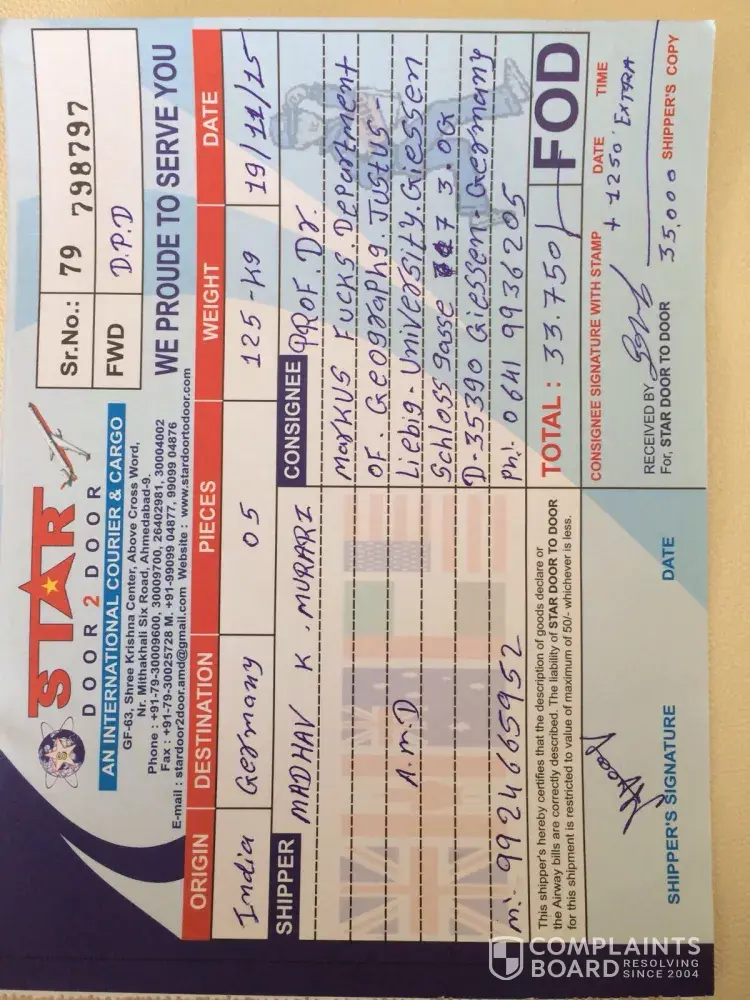 STAR
DOOR 2 DOOR
AN INTERNATIONAL COURIER & CARGO
GF-63, Shree Krishna Center, Above Cross Word,
Nr. Mithakhali Six Road, Ahmedabad-9.
Phone : +91-79-30009600, 30009700, 26402981, 30004002
Fax : +91-79-30025728 M. +91-99099 04877, 99099 04876
E-mail : stardoor2door.amd@gmail.com Website : www.stardoortodoor.com
Sr.No.: 79 798797
FWD D.P.D
WE PROUDE TO SERVE YOU
ORIGIN DESTINATION PIECES WEIGHT DATE
India Germany 05 125-K9 19/11/15
SHIPPER
MADHAV K. MURARI
A.M.D
M:- 9924665952
CONSIGNEE PROF. Dr.
Markus Fucks. Department
OF. Geography. Justus-
Liebig-University.Giessen
Schloss gasse 7 3.OG
D-35390 Giessen. Germany
Ph:- 0641 9936205
This shipper's hereby certifies that the description of goods declare or
the Airway bills are correctly described. The liability of STAR DOOR TO DOOR
for this shipment is restricted to value of maximum of 50/- whichever is less.
TOTAL : 33.750/ FOD
CONSIGNEE SIGNATURE WITH STAMP DATE TIME
+ 1250' Extra
RECEIVED BY
For, STAR DOOR TO DOOR
35,000 SHIPPER'S COPY
SHIPPER'S SIGNATURE DATE
COMPLAINTS
BOARD RESOLVING
SINCE 2004